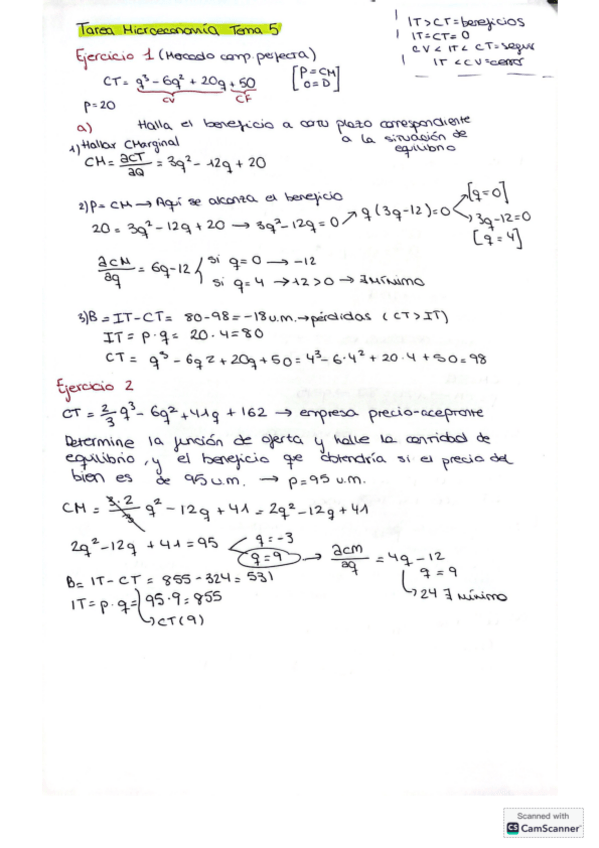 Tarea Microeconomía Tema 5
IT > CT = beneficios
IT = CT = 0
CV < IT < CT = seguir
IT < CV = cerrar
Ejercicio 1 (Mercado comp. perfecta)
CT = q³ - 6q² + 20q + 50
CV CF
[P = CM
O = D]
P = 20
a) Halla el beneficio a corto plazo correspondiente
a la situación de
equilibrio
1) Hallar CMarginal
CM = ∂CT/∂q = 3q² - 12q + 20
2) P = CM → Aquí se alcanza el beneficio
20 = 3q² - 12q + 20 → 3q² - 12q = 0 → q (3q - 12) = 0
[q = 0]
3q - 12 = 0
[q = 4]
∂CM/∂q = 6q - 12
si q = 0 → -12
si q = 4 → 12 > 0 → ∃ Mínimo
3) B = IT - CT = 80 - 98 = -18 u.m. → pérdidas (CT > IT)
IT = p · q = 20 · 4 = 80
CT = q³ - 6q2 + 20q + 50 = 4³ - 6·4² + 20·4 + 50 = 98
Ejercicio 2
CT = 2/3 q³ - 6q² + 41q + 162 → empresa precio-aceptante
Determine la función de oferta y halle la cantidad de
equilibrio, y el beneficio que obtendría si el precio del
bien es de 95 u.m. → p = 95 u.m.
CM = 3·2/3 q² - 12q + 41 = 2q² - 12q + 41
2q² - 12q + 41 = 95
q = -3
q = 9 → ∂cm/∂q = 4q - 12
q = 9
24 ∃ mínimo
B = IT - CT = 855 - 324 = 531
IT = p · q = 95 · 9 = 855
CT(9)
Scanned with
CS CamScanner